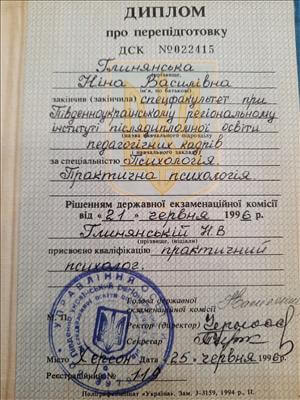 ДИПЛОМ
про перепідготовку
ДСК №022415
Глинянська
(прізвище,
Ніна Василівна
ім'я, по батькові)
закінчив (закінчила) спецфакультет при
Південноукраїнському регіональному
(назва навчального підрозділу
інституті післядипломної освіти
педагогічних кадрів
і навчального закладу)
за спеціальністю Психологія.
Практична психологія.
Рішенням державної екзаменаційної комісії
від «21» червня 1996 р.
Глинянській Н В
(прізвище, ініціали)
присвоєно кваліфікацію практичний
психолог.
Голова державної
екзаменаційної комісії
М. П.
Ректор (директор)
Секретар
Місто Херсон Дата 25 червня 1996 р.
Реєстраційний № 118
Поліграфкомбінат «Україна». Зам. 3-3159, 1994 р. II.